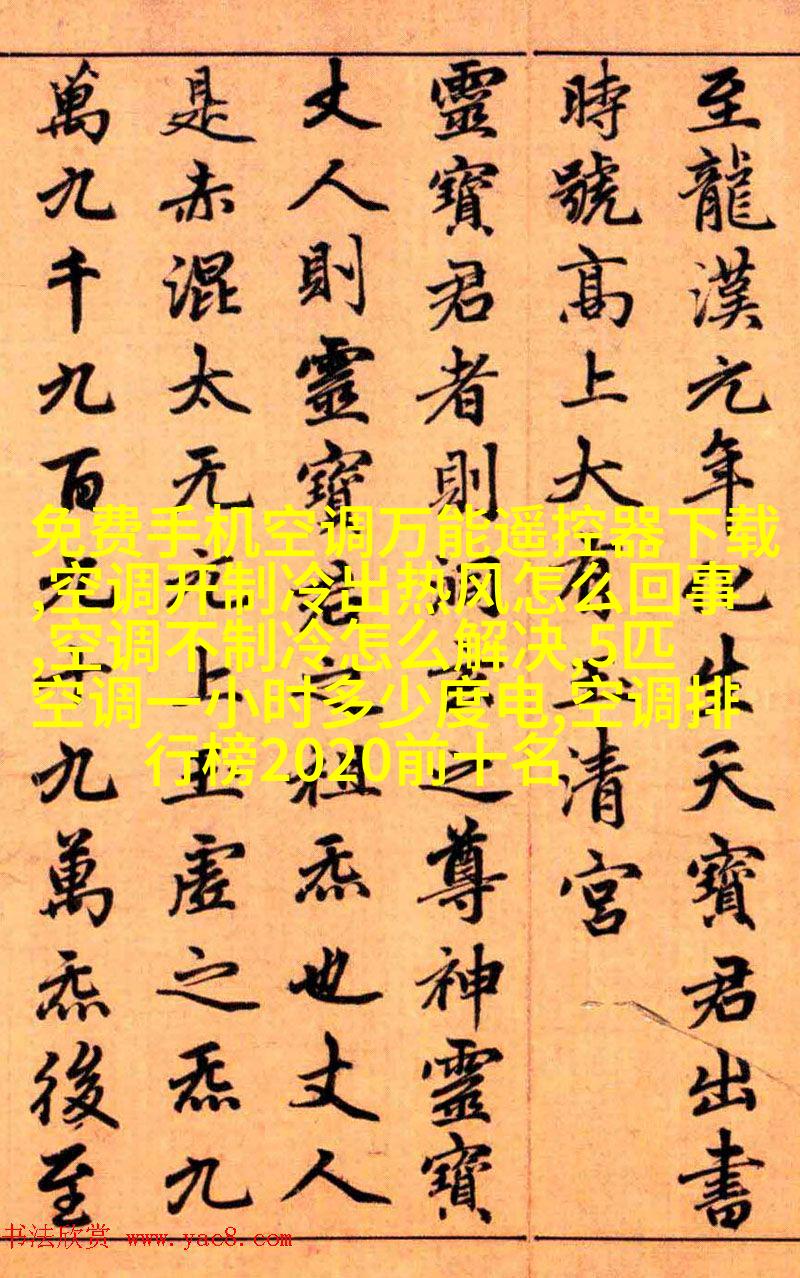 至龍漢元年化生天寶君出書
時號高上大有玉清宮
靈寶君者則洞玄之尊神靈寶
丈人則靈寶君之祖炁也丈人
是赤混太无元上玉虛之炁九
萬九千九百九十九萬炁後至
免费手机空调万能遥控器下载
,空调开制冷出热风怎么回事
,空调不制冷怎么解决,5匹
空调一小时多少度电,空调排
行榜2020前十名
书法欣赏 www.yac8.com